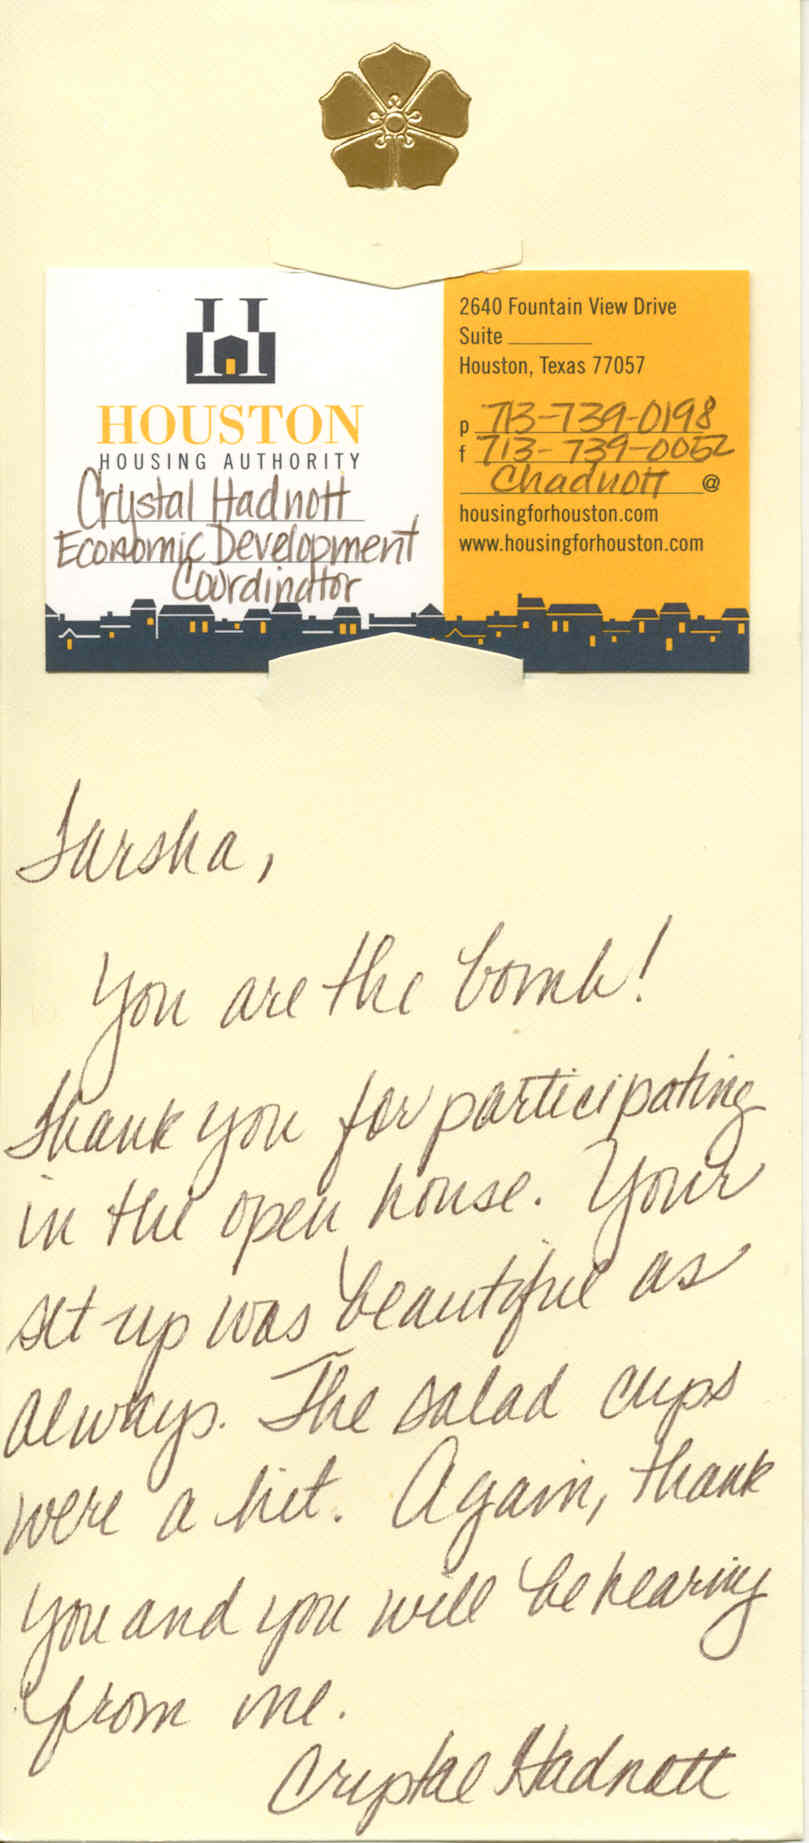 HOUSTON
HOUSING AUTHORITY
Crystal Hadnott
Economic Development
Coordinator
2640 Fountain View Drive
Suite
Houston, Texas 77057
p 713-739-0198
f 713-739-0052
Chadnott @
housingforhouston.com
www.housingforhouston.com
Tarsha,
You are the bomb!
Thank you for participating
in the open house. Your
set up was beautiful as
always. The salad cups
were a hit. Again, thank
you and you will be hearing
from me.
Crystal Hadnott